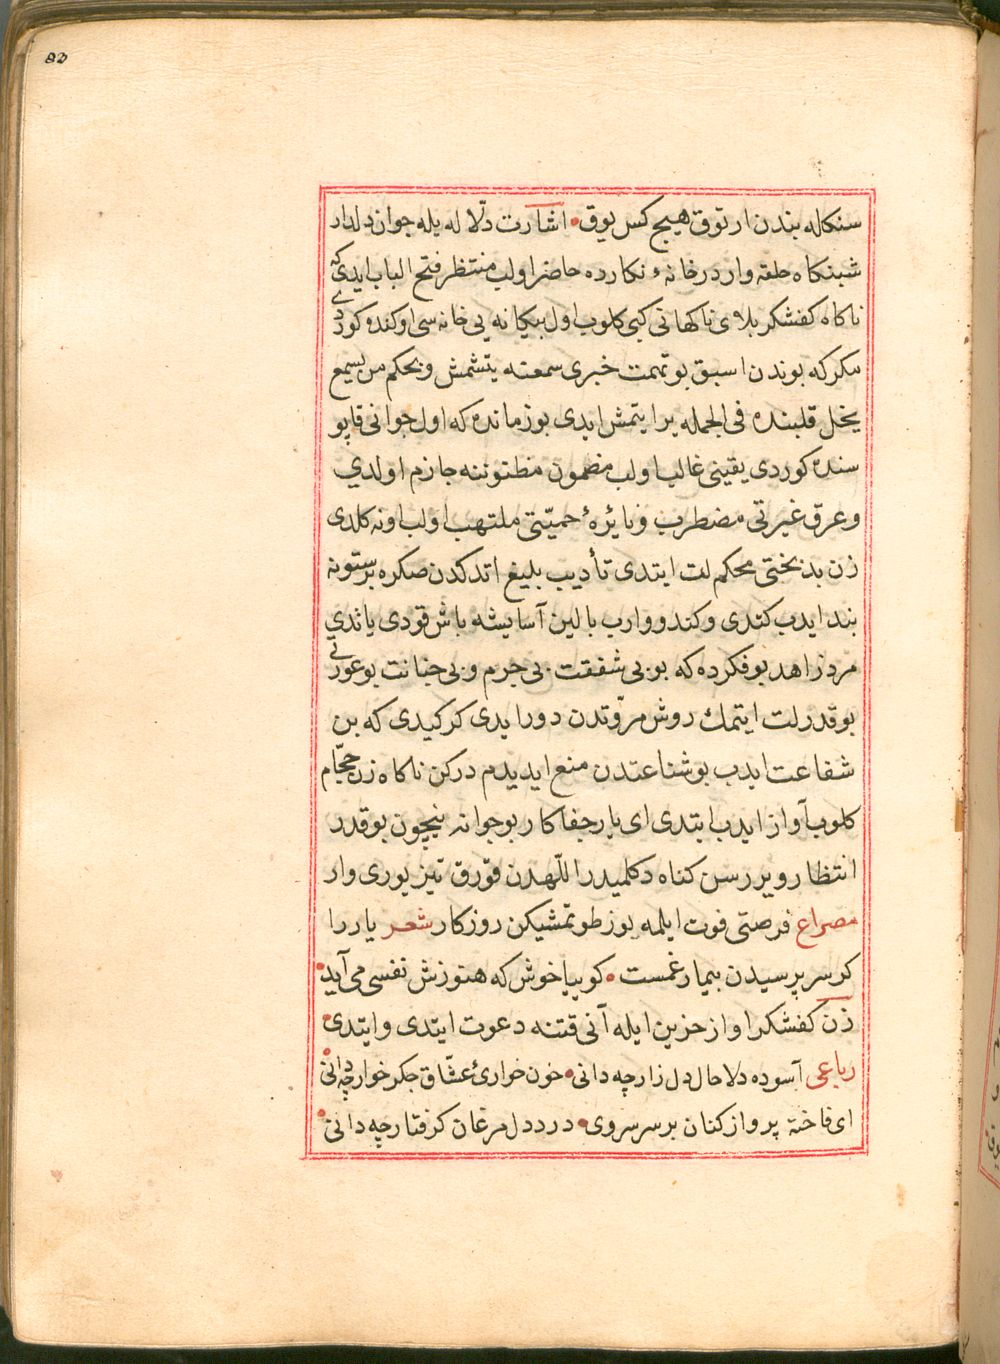 83
سنكاله بندن ارتوق هيچ كس يوق • اشارت دلّاله يله جوان دلدار
شبنكاه حلقه وار در خانهٔ نكارده حاضر اولب منتظر فتح الباب ايدى كه
ناكاه كفشكر بلاى ناكهانى كبى كلوب اول بيكانه يى خانه سى اوكنده كوردى
مكر كه بوندن اسبق بو تهمت خبرى سمعنه يتشمش و بحكم من يسمع
يخل قلبنده فى الجمله ير ايتمش ايدى بو زمانده كه اول جوانى قاپو
سنده كوردى يقينى غالب اولب مضمون مظنوننه جازم اولدي
و عرق غيرتى مضطرب و نايرهٔ حميّتى ملتهب اولب اونه كلدى
زن بدبختى محكم لت ايتدى تأديب بليغ اتدكدن صكره بر ستونه
بند ايدب كتدى و كندو وارب بالين آسايشه باش قودى ياتدي
مرد زاهد بو فكرده كه بو بى شفقت بى جرم و بى جنايت بو عورتى
بو قدر لت ايتمك روش مروّتدن دور ايدى كركيدى كه بن
شفاعت ايدب بو شناعتدن منع ايديدم دركن ناكاه زن حجّام
كلوب آواز ايدب ايتدى اى يار جفاكار بو جوانه نيچون بو قدر
انتظار ويررسن كناه دكلميدر اللّهدن قورق تيز يورى وار
مصراع فرصتى فوت ايلمه يوز طوتمشيكن روزكار شعر يار را
كر سر پرسيدن بيمار غمست • كو بيا خوش كه هنوزش نفسى مى آيد •
زن كفشكر اواز حزين ايله آنى قتنه دعوت ايتدى و ايتدى •
رباعى آسوده دلا حال دل زار چه دانى • خون خوارىٔ عشّاق جكر خوار چه دانى •
اى فاخته پرواز كنان بر سر سروى • درد دل مرغان كرفتار چه دانى •